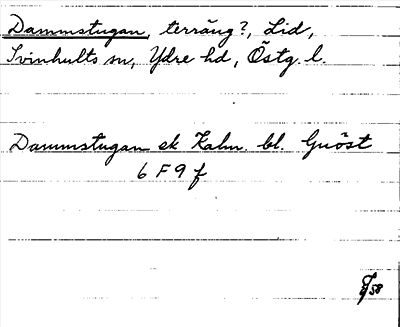 Dammstugan, terräng?, Lid,
Svinhults sn, Ydre hd, Östg. l.
Dammstugan ek Kalm. bl. Gnöst
6 F 9 f
58